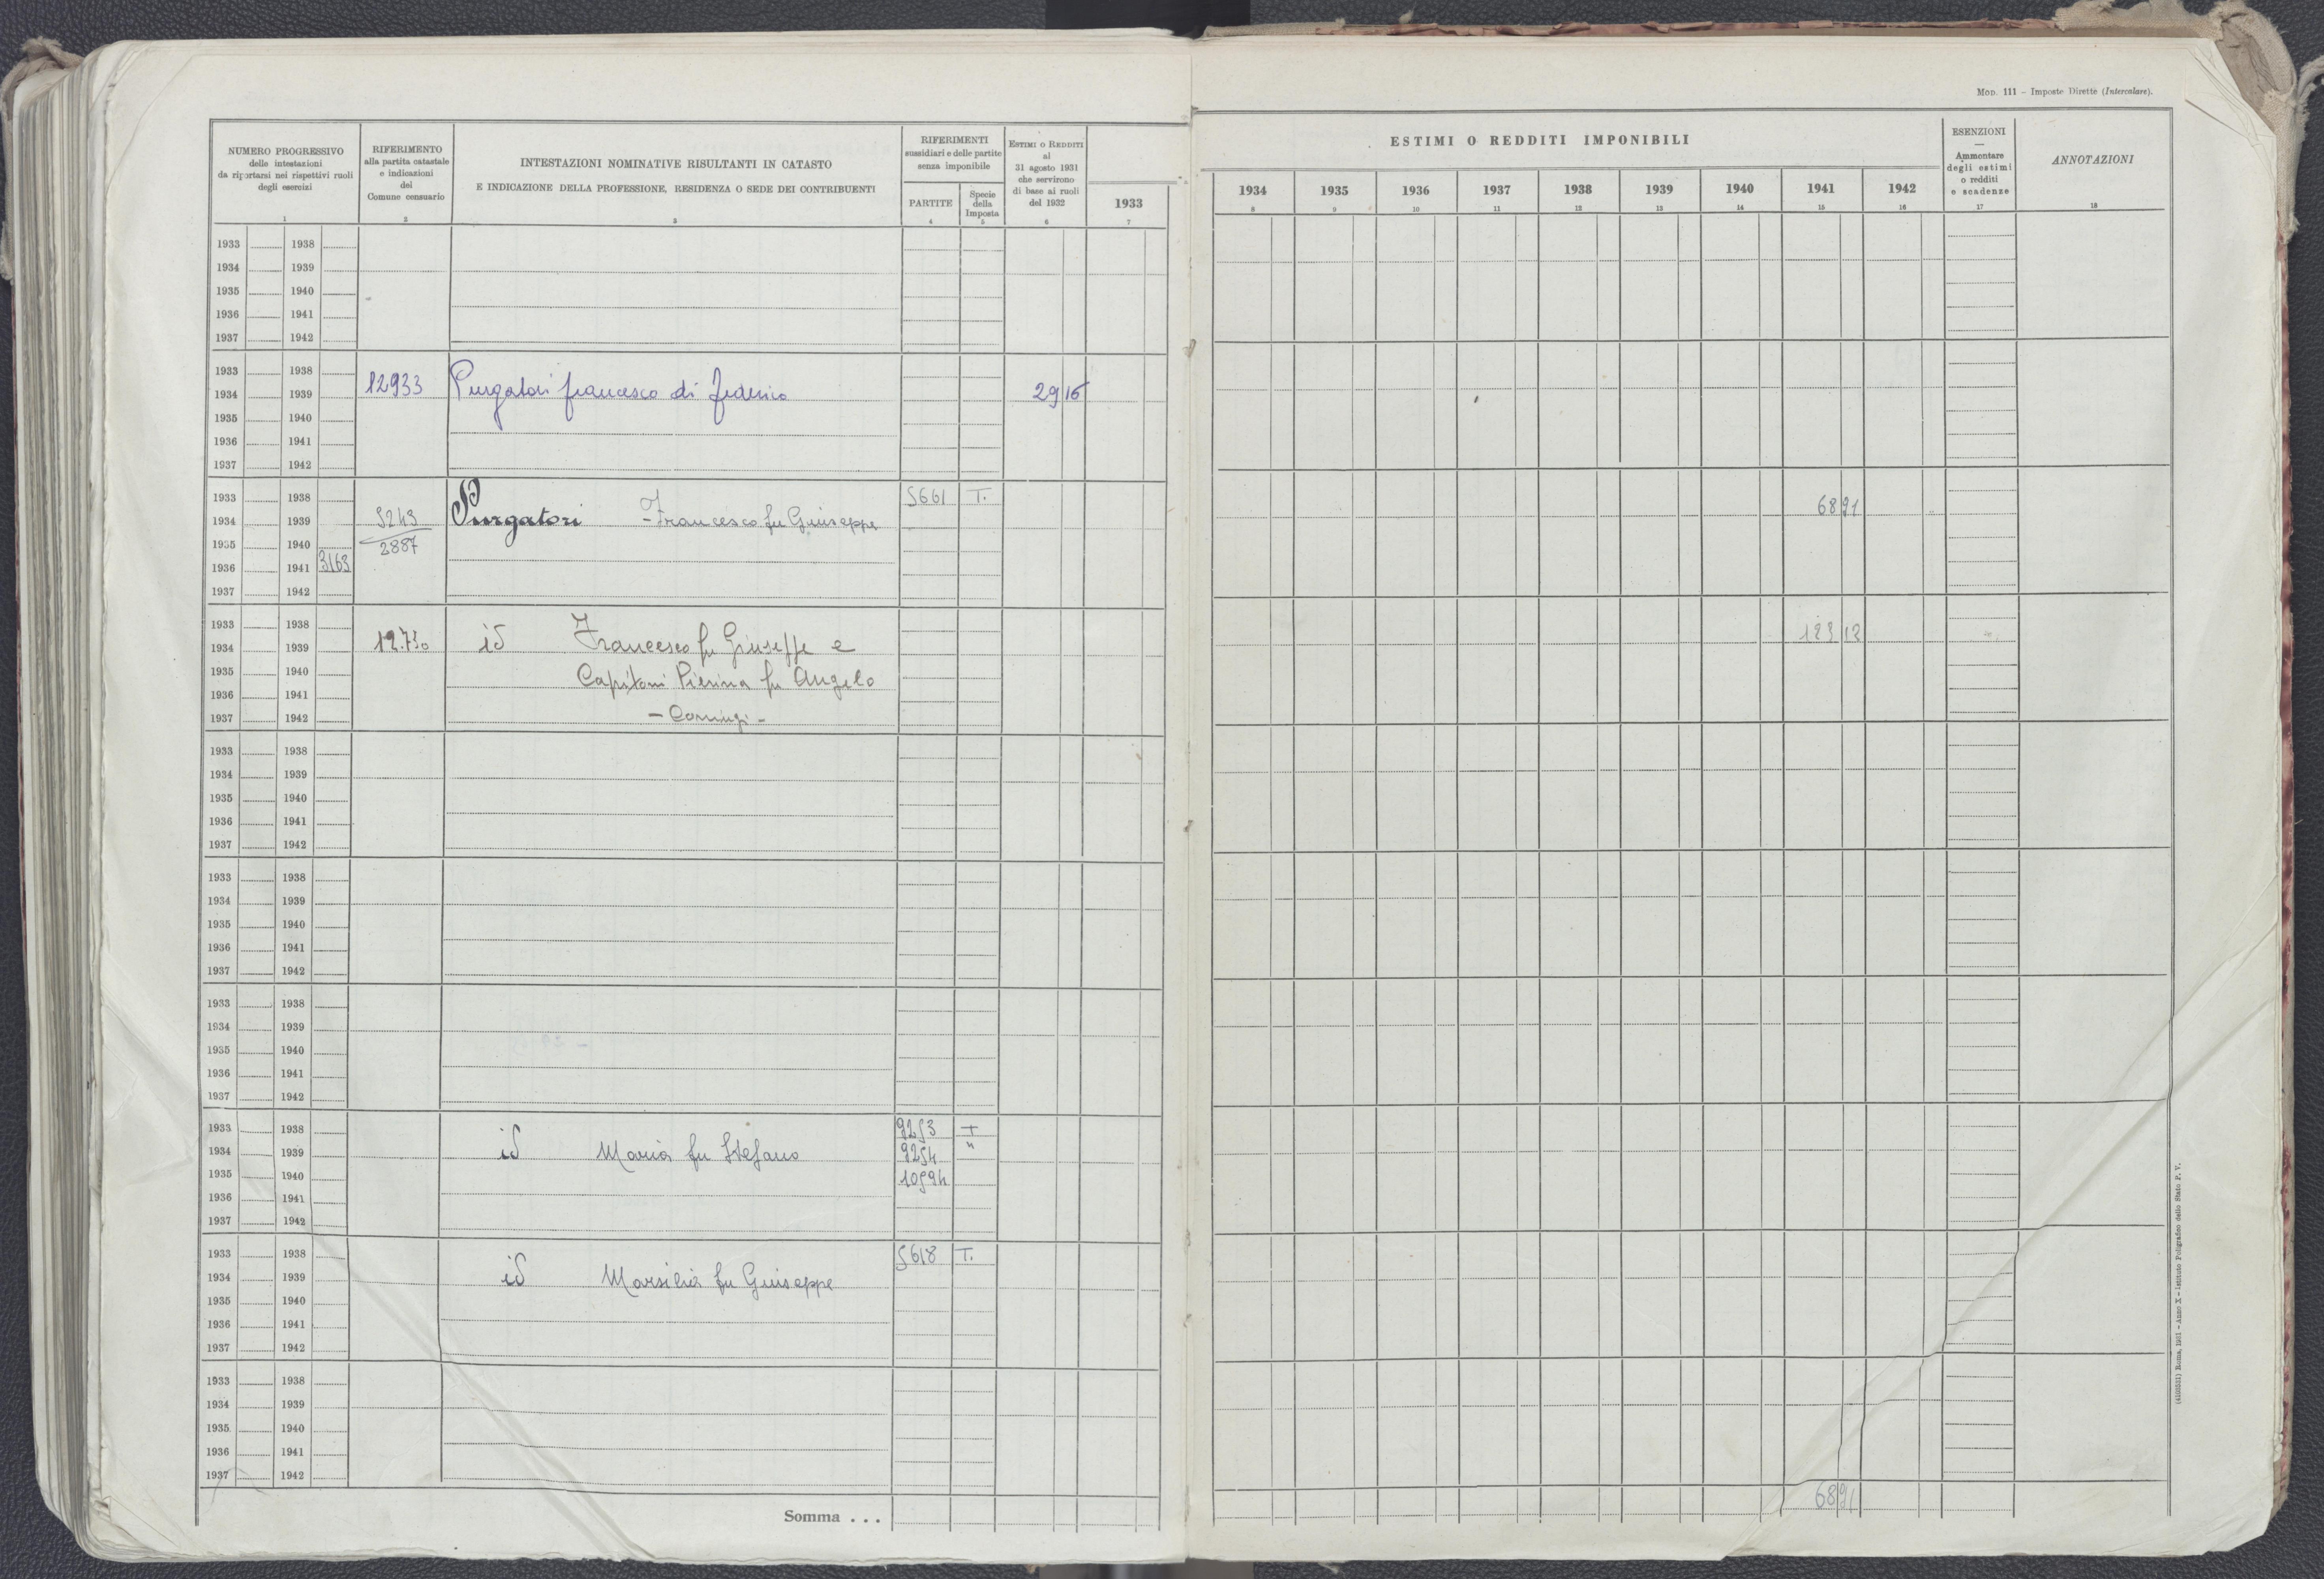 MOD. 111 – Imposte Dirette (Intercalare).
NUMERO PROGRESSIVO
delle intestazioni
da riportarsi nei rispettivi ruoli
degli esercizi
1
RIFERIMENTO
alla partita catastale
e indicazioni
del
Comune censuario
2
INTESTAZIONI NOMINATIVE RISULTANTI IN CATASTO
E INDICAZIONE DELLA PROFESSIONE, RESIDENZA O SEDE DEI CONTRIBUENTI
3
RIFERIMENTI
sussidiari e delle partite
senza imponibile
PARTITE
4
Specie
della
Imposta
5
ESTIMI O REDDITI
al
31 agosto 1931
che servirono
di base ai ruoli
del 1932
6
1933
7
ESTIMI O REDDITI IMPONIBILI
1934 1935 1936 1937 1938 1939 1940 1941 1942
8 9 10 11 12 13 14 15 16
ESENZIONI
—
Ammontare
degli estimi
o redditi
e scadenze
17
ANNOTAZIONI
18
1933 1938
1934 1939
1935 1940
1936 1941
1937 1942
1933 1938
1934 1939 12933 Purgatori Francesco di Federico 29 16
1935 1940
1936 1941
1937 1942
1933 1938 5661 T. 68 91
1934 1939 5249 Purgatori Francesco fu Giuseppe
1935 1940 2887
1936 1941 3163
1937 1942
1933 1938 123 12
1934 1939 12.730 id Francesco fu Giuseppe e
1935 1940 Capitoni Pierina fu Angelo
1936 1941
1937 1942 – Coniugi –
1933 1938
1934 1939
1935 1940
1936 1941
1937 1942
1933 1938
1934 1939
1935 1940
1936 1941
1937 1942
1933 1938
1934 1939
1935 1940
1936 1941
1937 1942
1933 1938 9253 T
1934 1939 id Maria fu Stefano 9254 "
1935 1940 10594
1936 1941
1937 1942
1933 1938 5618 T.
1934 1939 id Marsilia fu Giuseppe
1935 1940
1936 1941
1937 1942
1933 1938
1934 1939
1935 1940
1936 1941
1937 1942
Somma . . . 68 91
(4103531) Roma, 1931 – Anno X – Istituto Poligrafico dello Stato P. V.